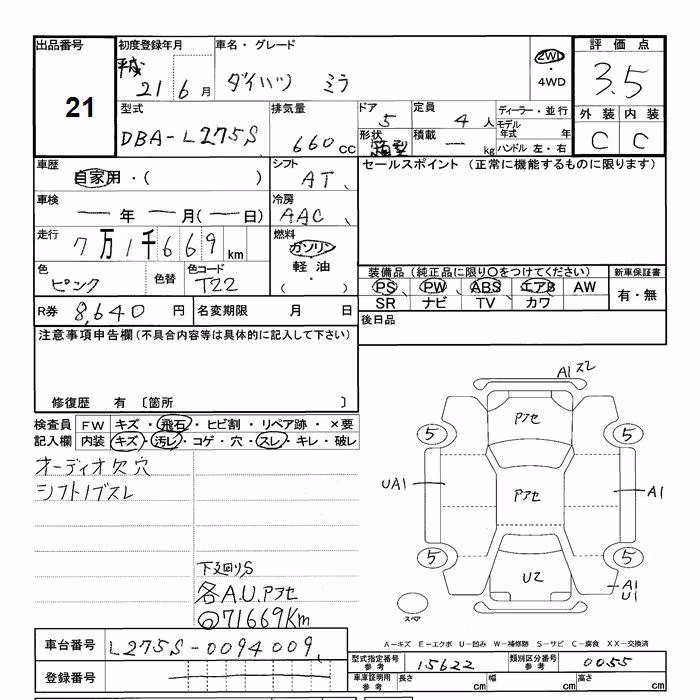 出品番号
21
初度登録年月
平成
21 6 月
車名・グレード
ダイハツ ミラ
2WD
・
4WD
評価点
3.5
外装 内装
C C
型式
DBA-L275S
排気量
660 CC
ドア
5
定員
4 人
形状
箱型
積載
— kg
ディーラー・並行
モデル
年式 年
ハンドル 左・右
車歴
自家用・( )
シフト
AT、
セールスポイント (正常に機能するものに限ります)
車検
— 年 — 月(— 日)
冷房
AAC、
走行
7万1千669 km
燃料
ガソリン
軽油
・
( )
色
ピンク
色替
色コード
T22
装備品(純正品に限り○をつけてください)
PS、 PW、 ABS、 エアB AW
SR ナビ TV カワ
新車保証書
有・無
R券 8,640 円
名変期限 月 日
後日品
注意事項申告欄(不具合内容等は具体的に記入して下さい)
修復歴 有 〔箇所 〕
検査員
記入欄
FW キズ・飛石・ヒビ割・リペア跡・×要
内装 キズ・汚レ・コゲ・穴・スレ・キレ・破レ
オーディオ欠穴
シフトノブスレ
下廻りS
各A.U.Pアセ
◎71669Km
A1 ズレ
Pアセ
5 5
UA1
Pアセ
A1
5 5
U2
A1
U1
スペア
A-キズ E-エクボ U-凹み W-補修跡 S-サビ C-腐食 XX-交換済
車台番号 L275S-0094009、
登録番号
型式指定番号
参考
15622
類別区分番号
参考
0055
車庫証明用
参考
長さ cm 幅 cm 高さ cm